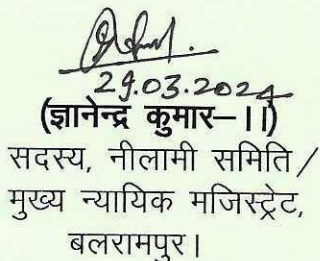 29.03.2024
(ज्ञानेन्द्र कुमार–।।)
सदस्य, नीलामी समिति /
मुख्य न्यायिक मजिस्ट्रेट,
बलरामपुर।